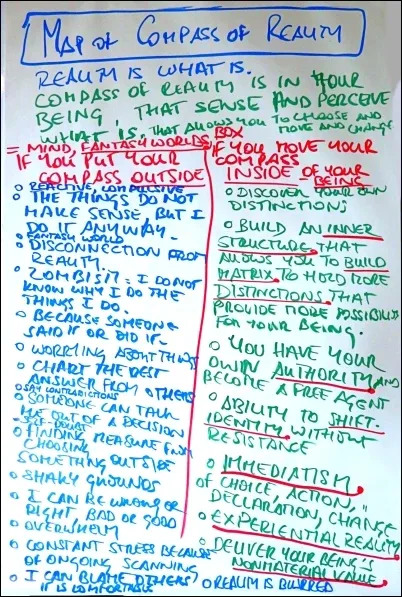 MAP OF COMPASS OF REALITY
REALITY IS WHAT IS.
COMPASS OF REALITY IS IN YOUR
BEING, THAT SENSE AND PERCEIVE
WHAT IS, THAT ALLOWS YOU TO CHOOSE AND
MOVE AND CHANGE
= MIND, FANTASY WORLDS, BOX
IF YOU PUT YOUR
COMPASS OUTSIDE
o REACTIVE, COMPULSIVE
o THE THINGS DO NOT
MAKE SENSE, BUT I
DO IT ANYWAY.
o FANTASY WORLD
o DISCONNECTION FROM
REALITY.
o ZOMBISIT = I DO NOT
KNOW WHY I DO THE
THINGS I DO.
o BECAUSE SOMEONE
SAID IT OR DID IT.
o WORRYING ABOUT THINGS
o CHART THE BEST
ANSWER FROM OTHERS
o SAY CONTRADICTIONS
o SOMEONE CAN TALK
ME OUT OF A DECISION
o SELF-DOUBT
o FINDING MEASURE FROM
CHOOSING
SOMETHING OUTSIDE
o SHAKY GROUNDS
o I CAN BE WRONG OR
RIGHT BAD OR GOOD
o OVERWHELM
o CONSTANT STRESS BECAUSE
OF ONGOING SCANNING
o I CAN BLAME OTHERS
IT IS COMFORTABLE
IF YOU MOVE YOUR
COMPASS
INSIDE OF YOUR
BEING
o DISCOVER YOUR OWN
DISTINCTIONS
o BUILD AN INNER
STRUCTURE THAT
ALLOWS YOU TO BUILD
MATRIX TO HOLD MORE
DISTINCTIONS THAT
PROVIDE MORE POSSIBILITY
FOR YOUR BEING.
o YOU HAVE YOUR
OWN AUTHORITY AND
BECOME A FREE AGENT
o ABILITY TO SHIFT-
IDENTITY WITHOUT
RESISTANCE
o IMMEDIATISM
OF CHOICE, ACTION,
DECLARATION, CHANGE
o EXPERIENTIAL REALITY
o DELIVER YOUR BEING'S
NONMATERIAL VALUE
o REALITY IS BLURRED